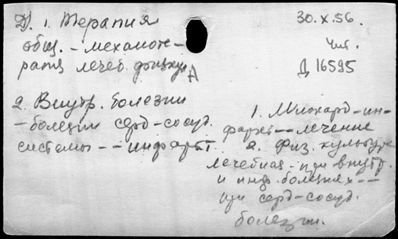 Д. 1. Терапия
общ. - механоте-
рапия лечеб. физкул
30.X.56.
Чит.
Д 16595
2. Внутр. болезни
- болезни серд-сосуд.
системы - - инфаркт
1. Миокард-ин-
фаркт - - лечение
2. Физ. культура
лечебная - при внутр
и инф. болезнях - -
при серд-сосуд.
болезни.